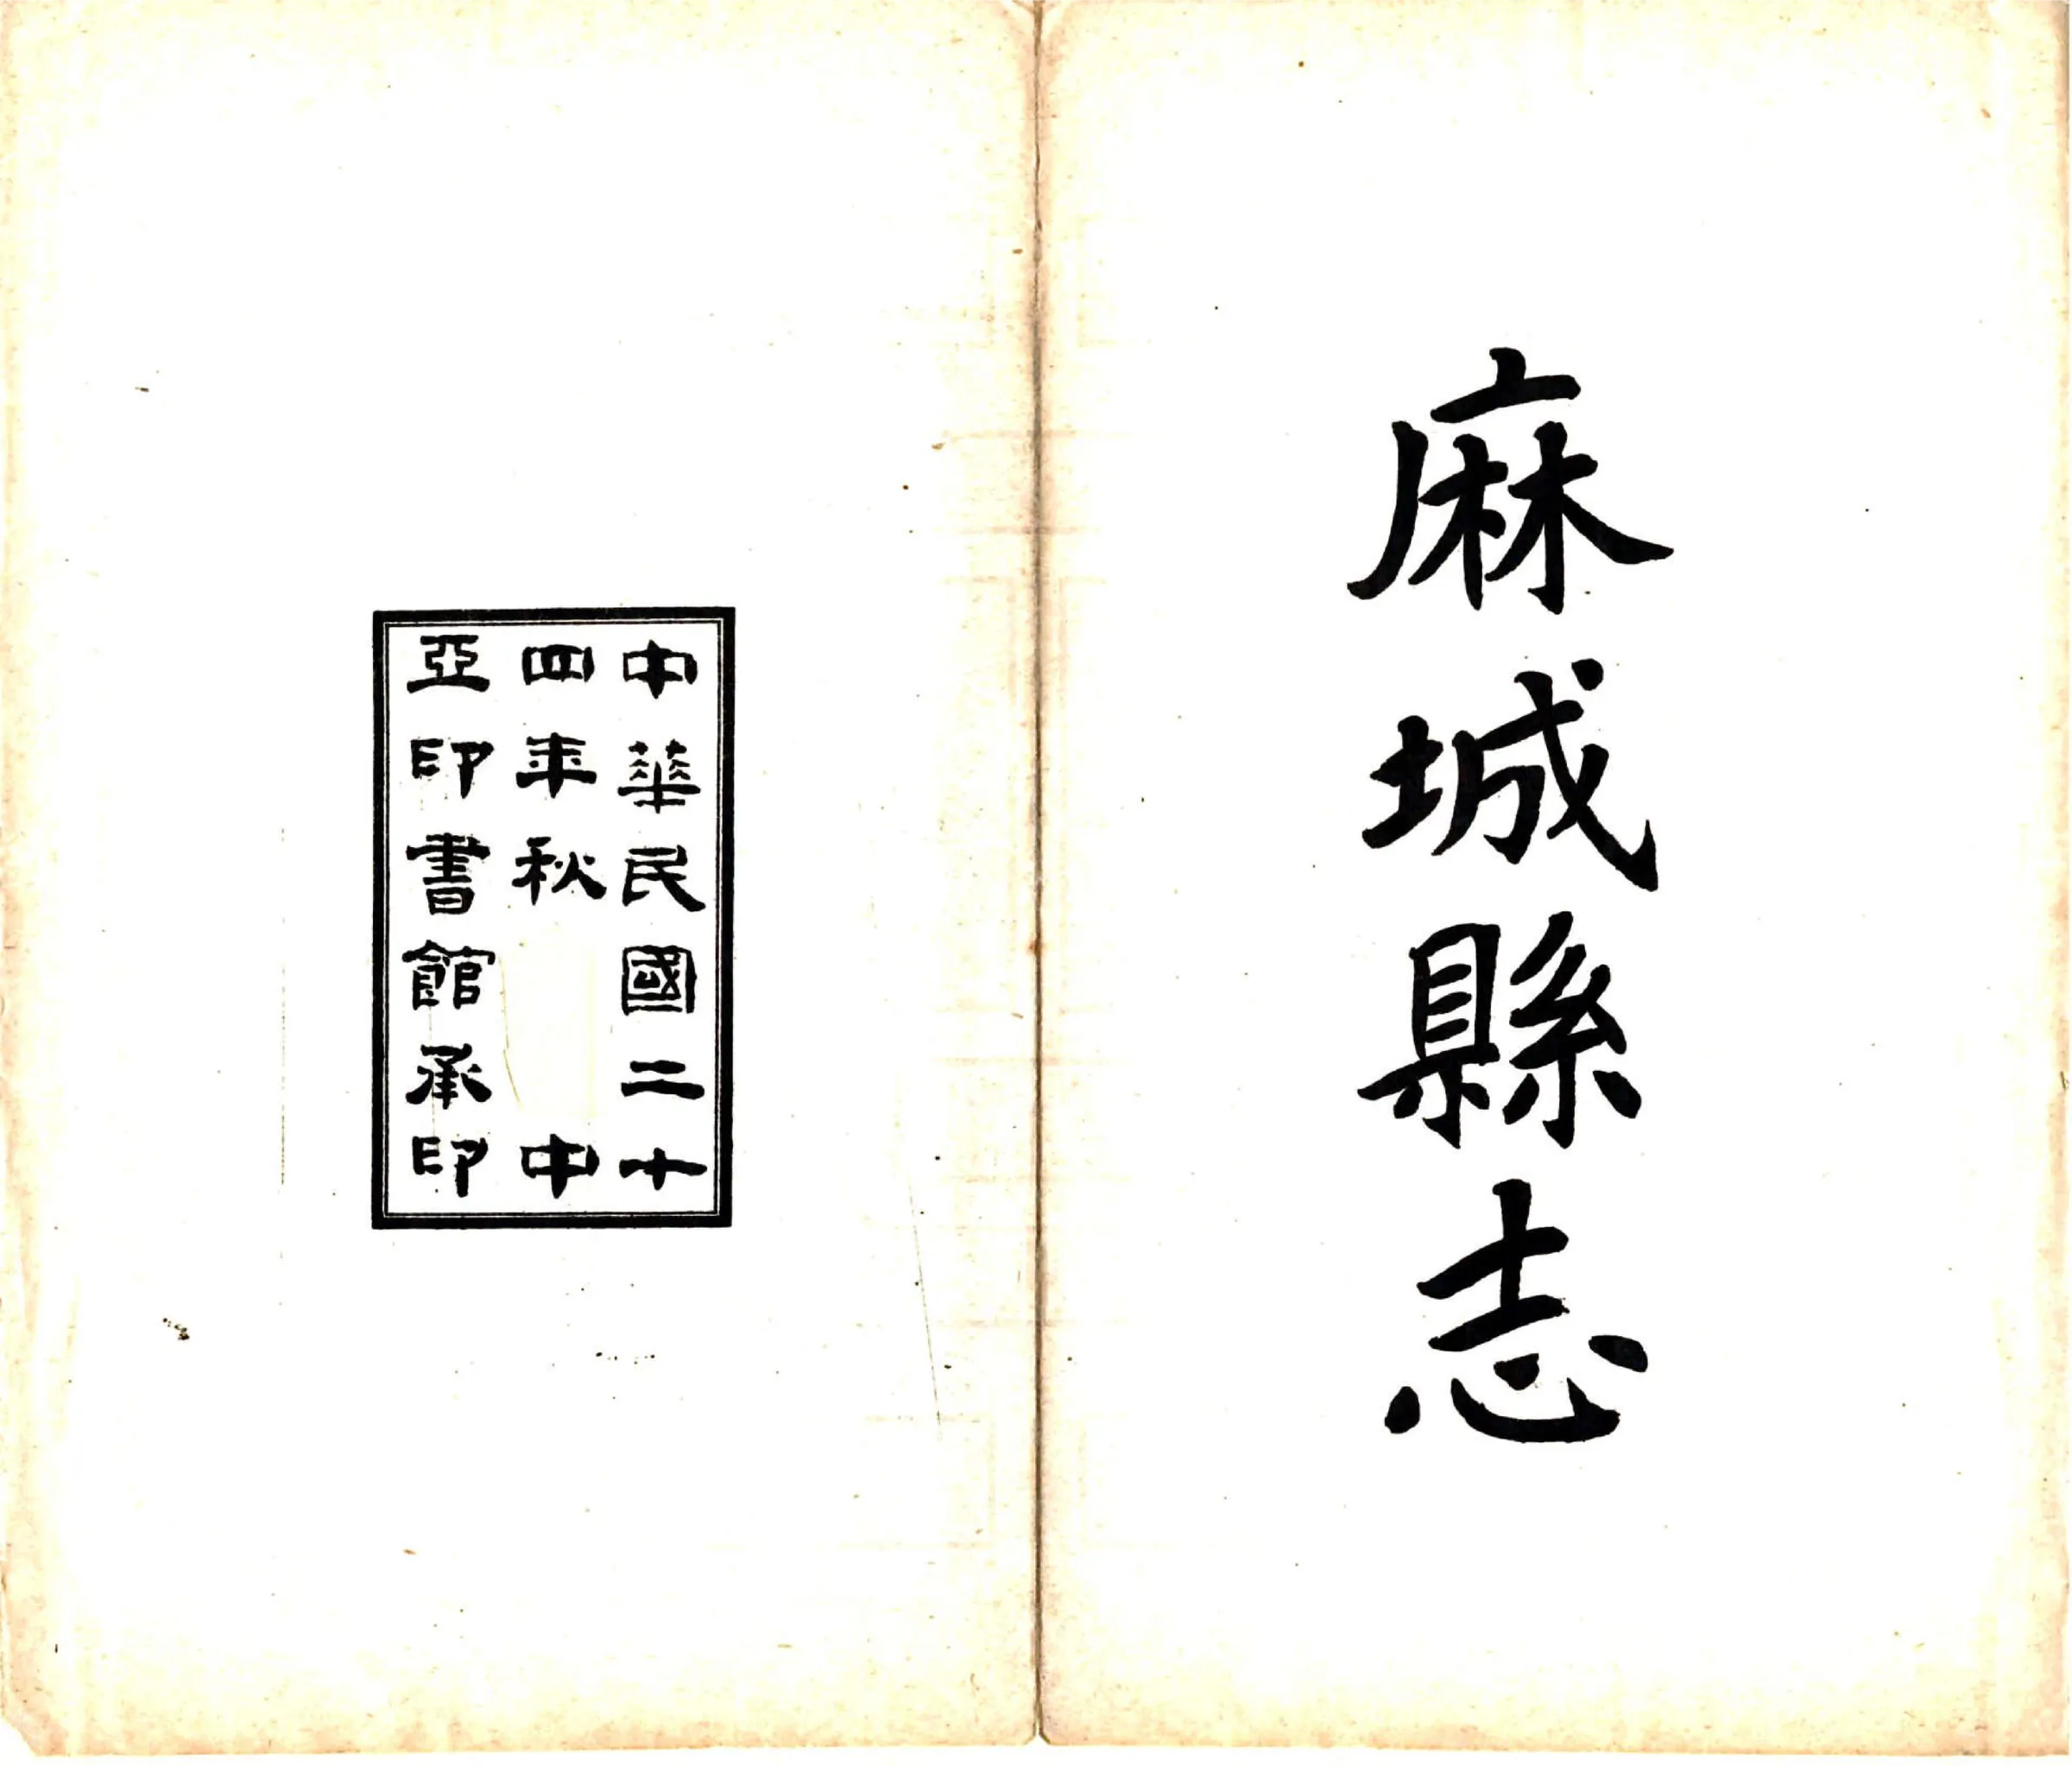 麻城縣志
中華民國二十
四年秋 中
亞印書館承印